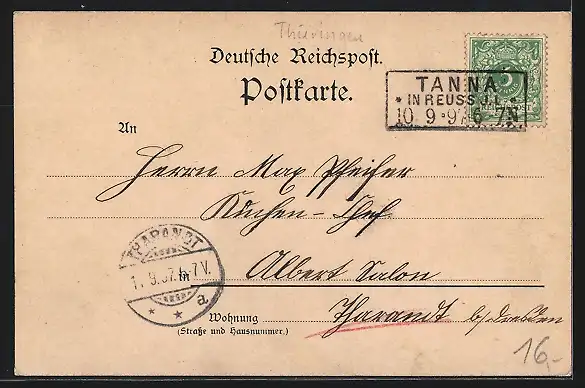 Thüringen
Deutsche Reichspost.
Postkarte.
TANNA
* IN REUSS J.L. *
10. 9 97 6-7N
An
Herrn Max Pfeifer
Küchen-Chef
THARANDT
1. 9.97.6-7V.
* * a
in Albert Salon
Tharandt b/Dresden
Wohnung
(Straße und Hausnummer.)
16,-